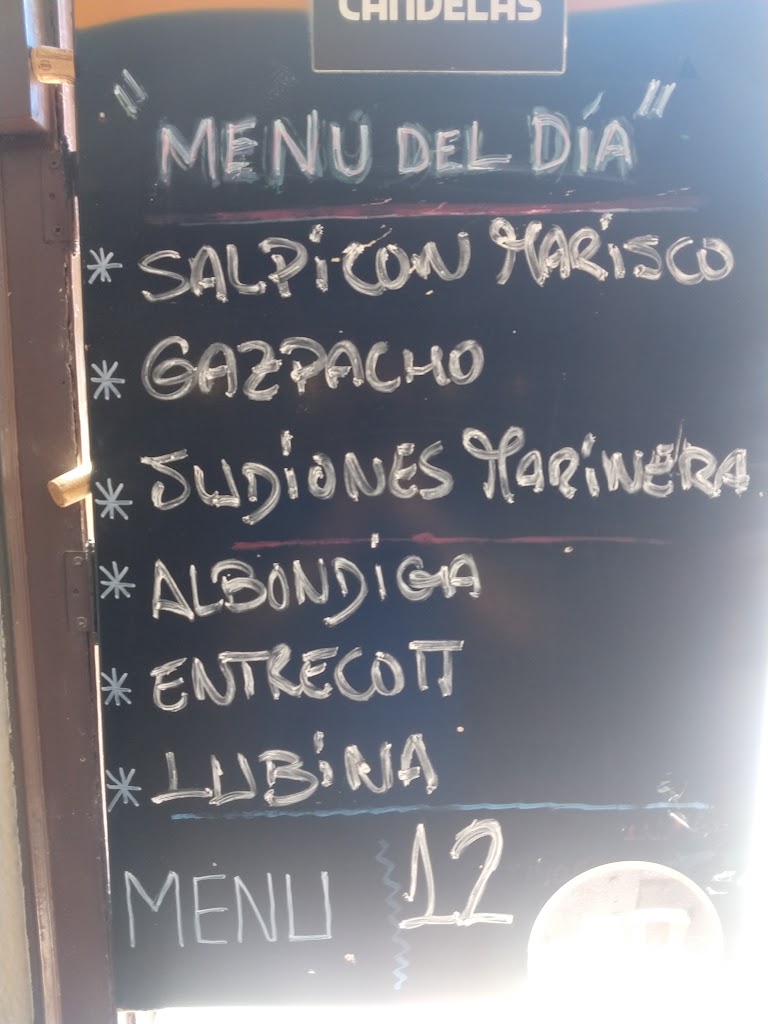 CANDELAS
"MENU DEL DÍA"
* SALPiCON MARiSCO
* GAZPACHO
* JUDiONES MARiNERA
* ALBONDiGA
* ENTRECOTT
* LUBiNA
MENU 12